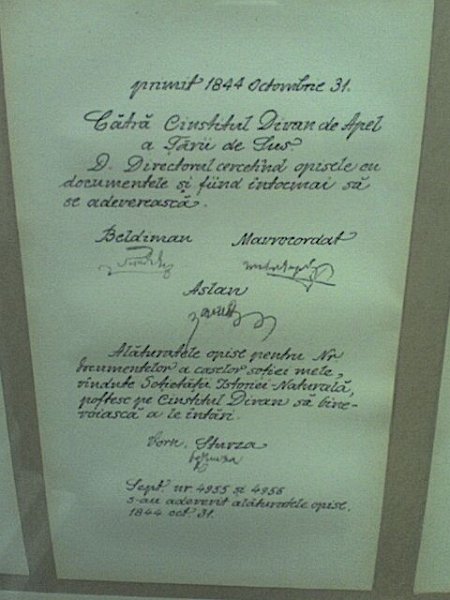 primit 1844 Octombrie 31.
Cătră Cinstitul Divan de Apel
a Țării de Sus.
D. Directorul cercetînd opisele cu
documentele și fiind întocmai să
se adeverească.
Beldiman Mavrocordat
Aslan
Alăturatele opise pentru Nr
documentelor a caselor soției mele,
vîndute Soțietății Istoriei-Naturală,
poftesc pe Cinstitul Divan să bine-
voiască a le întări
Vorn. Sturza
Sept. nr 4955 și 4956
s-au adeverit alăturatele opise.
1844 oct 31.